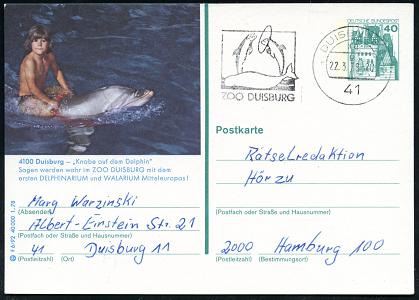 4100 Duisburg – „Knabe auf dem Delphin"
Sagen werden wahr im ZOO DUISBURG mit dem
ersten DELPHINARIUM und WALARIUM Mitteleuropas!
Mary Warzinski
(Absender)
Albert-Einstein Str. 21
(Postfach oder Straße und Hausnummer)
41 Duisburg 11
(Postleitzahl) (Ort)
ZOO DUISBURG
DUISBURG
22.3.
41
DEUTSCHE BUNDESPOST
40
Postkarte
Rätselredaktion
Hör zu
(Postfach oder Straße und Hausnummer)
2000 Hamburg 100
(Postleitzahl) (Bestimmungsort)